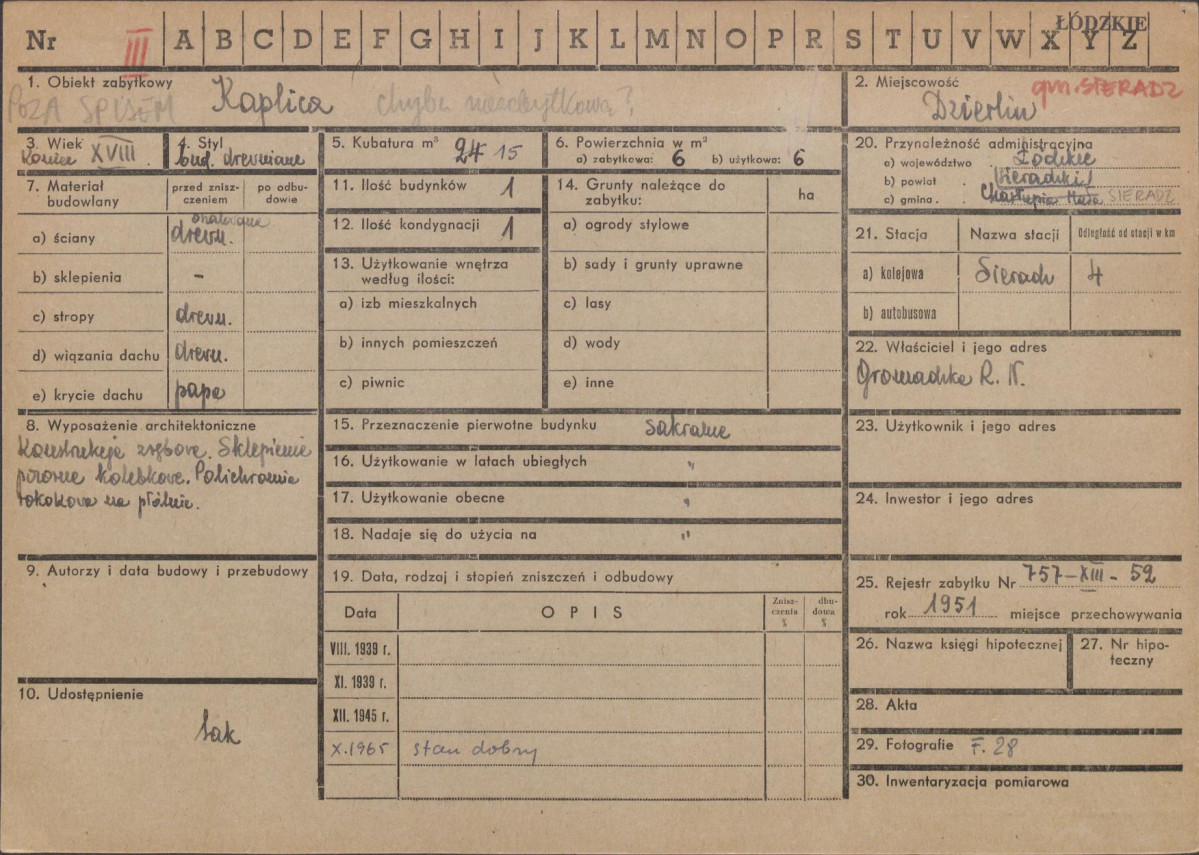 ŁÓDZKIE
Nr III A B C D E F G H I J K L M N O P R S T U V W X Y Z
1. Obiekt zabytkowy
POZA SPISEM Kaplica chyba niezabytkowa?
2. Miejscowość gm. SIERADZ
Dzierlin
3. Wiek
koniec XVIII
4. Styl
bud. drewniane
5. Kubatura m³ 24 15
6. Powierzchnia w m²
a) zabytkowa: 6 b) użytkowa: 6
7. Materiał budowlany
przed zniszczeniem
po odbudowie
a) ściany
drewn.
b) sklepienia -
c) stropy drewn.
d) wiązania dachu drewn.
e) krycie dachu papa
8. Wyposażenie architektoniczne
Konstrukcja zrębowa. Sklepienie
pozorne kolebkowe. Polichromia
rokokowa na płótnie.
9. Autorzy i data budowy i przebudowy
10. Udostępnienie
tak
11. Ilość budynków 1
12. Ilość kondygnacji 1
13. Użytkowanie wnętrza
według ilości:
a) izb mieszkalnych
b) innych pomieszczeń
c) piwnic
14. Grunty należące do
zabytku:
ha
a) ogrody stylowe
b) sady i grunty uprawne
c) lasy
d) wody
e) inne
15. Przeznaczenie pierwotne budynku sakralne
16. Użytkowanie w latach ubiegłych "
17. Użytkowanie obecne "
18. Nadaje się do użycia na "
19. Data, rodzaj i stopień zniszczeń i odbudowy
Data
OPIS
Zniszczenia %
dbudowa %
VIII. 1939 r.
XI. 1939 r.
XII. 1945 r.
X.1965 stan dobry
20. Przynależność administracyjna
a) województwo . Łódzkie
b) powiat . Sieradzki
c) gmina . Charłupia Mała SIERADZ
21. Stacja
Nazwa stacji
Odległość od stacji w km
a) kolejowa Sieradz 4
b) autobusowa
22. Właściciel i jego adres
Gromadzka R. N.
23. Użytkownik i jego adres
24. Inwestor i jego adres
25. Rejestr zabytku Nr 757-XIII-52
rok 1951 miejsce przechowywania
26. Nazwa księgi hipotecznej
27. Nr hipoteczny
28. Akta
29. Fotografie F. 28
30. Inwentaryzacja pomiarowa